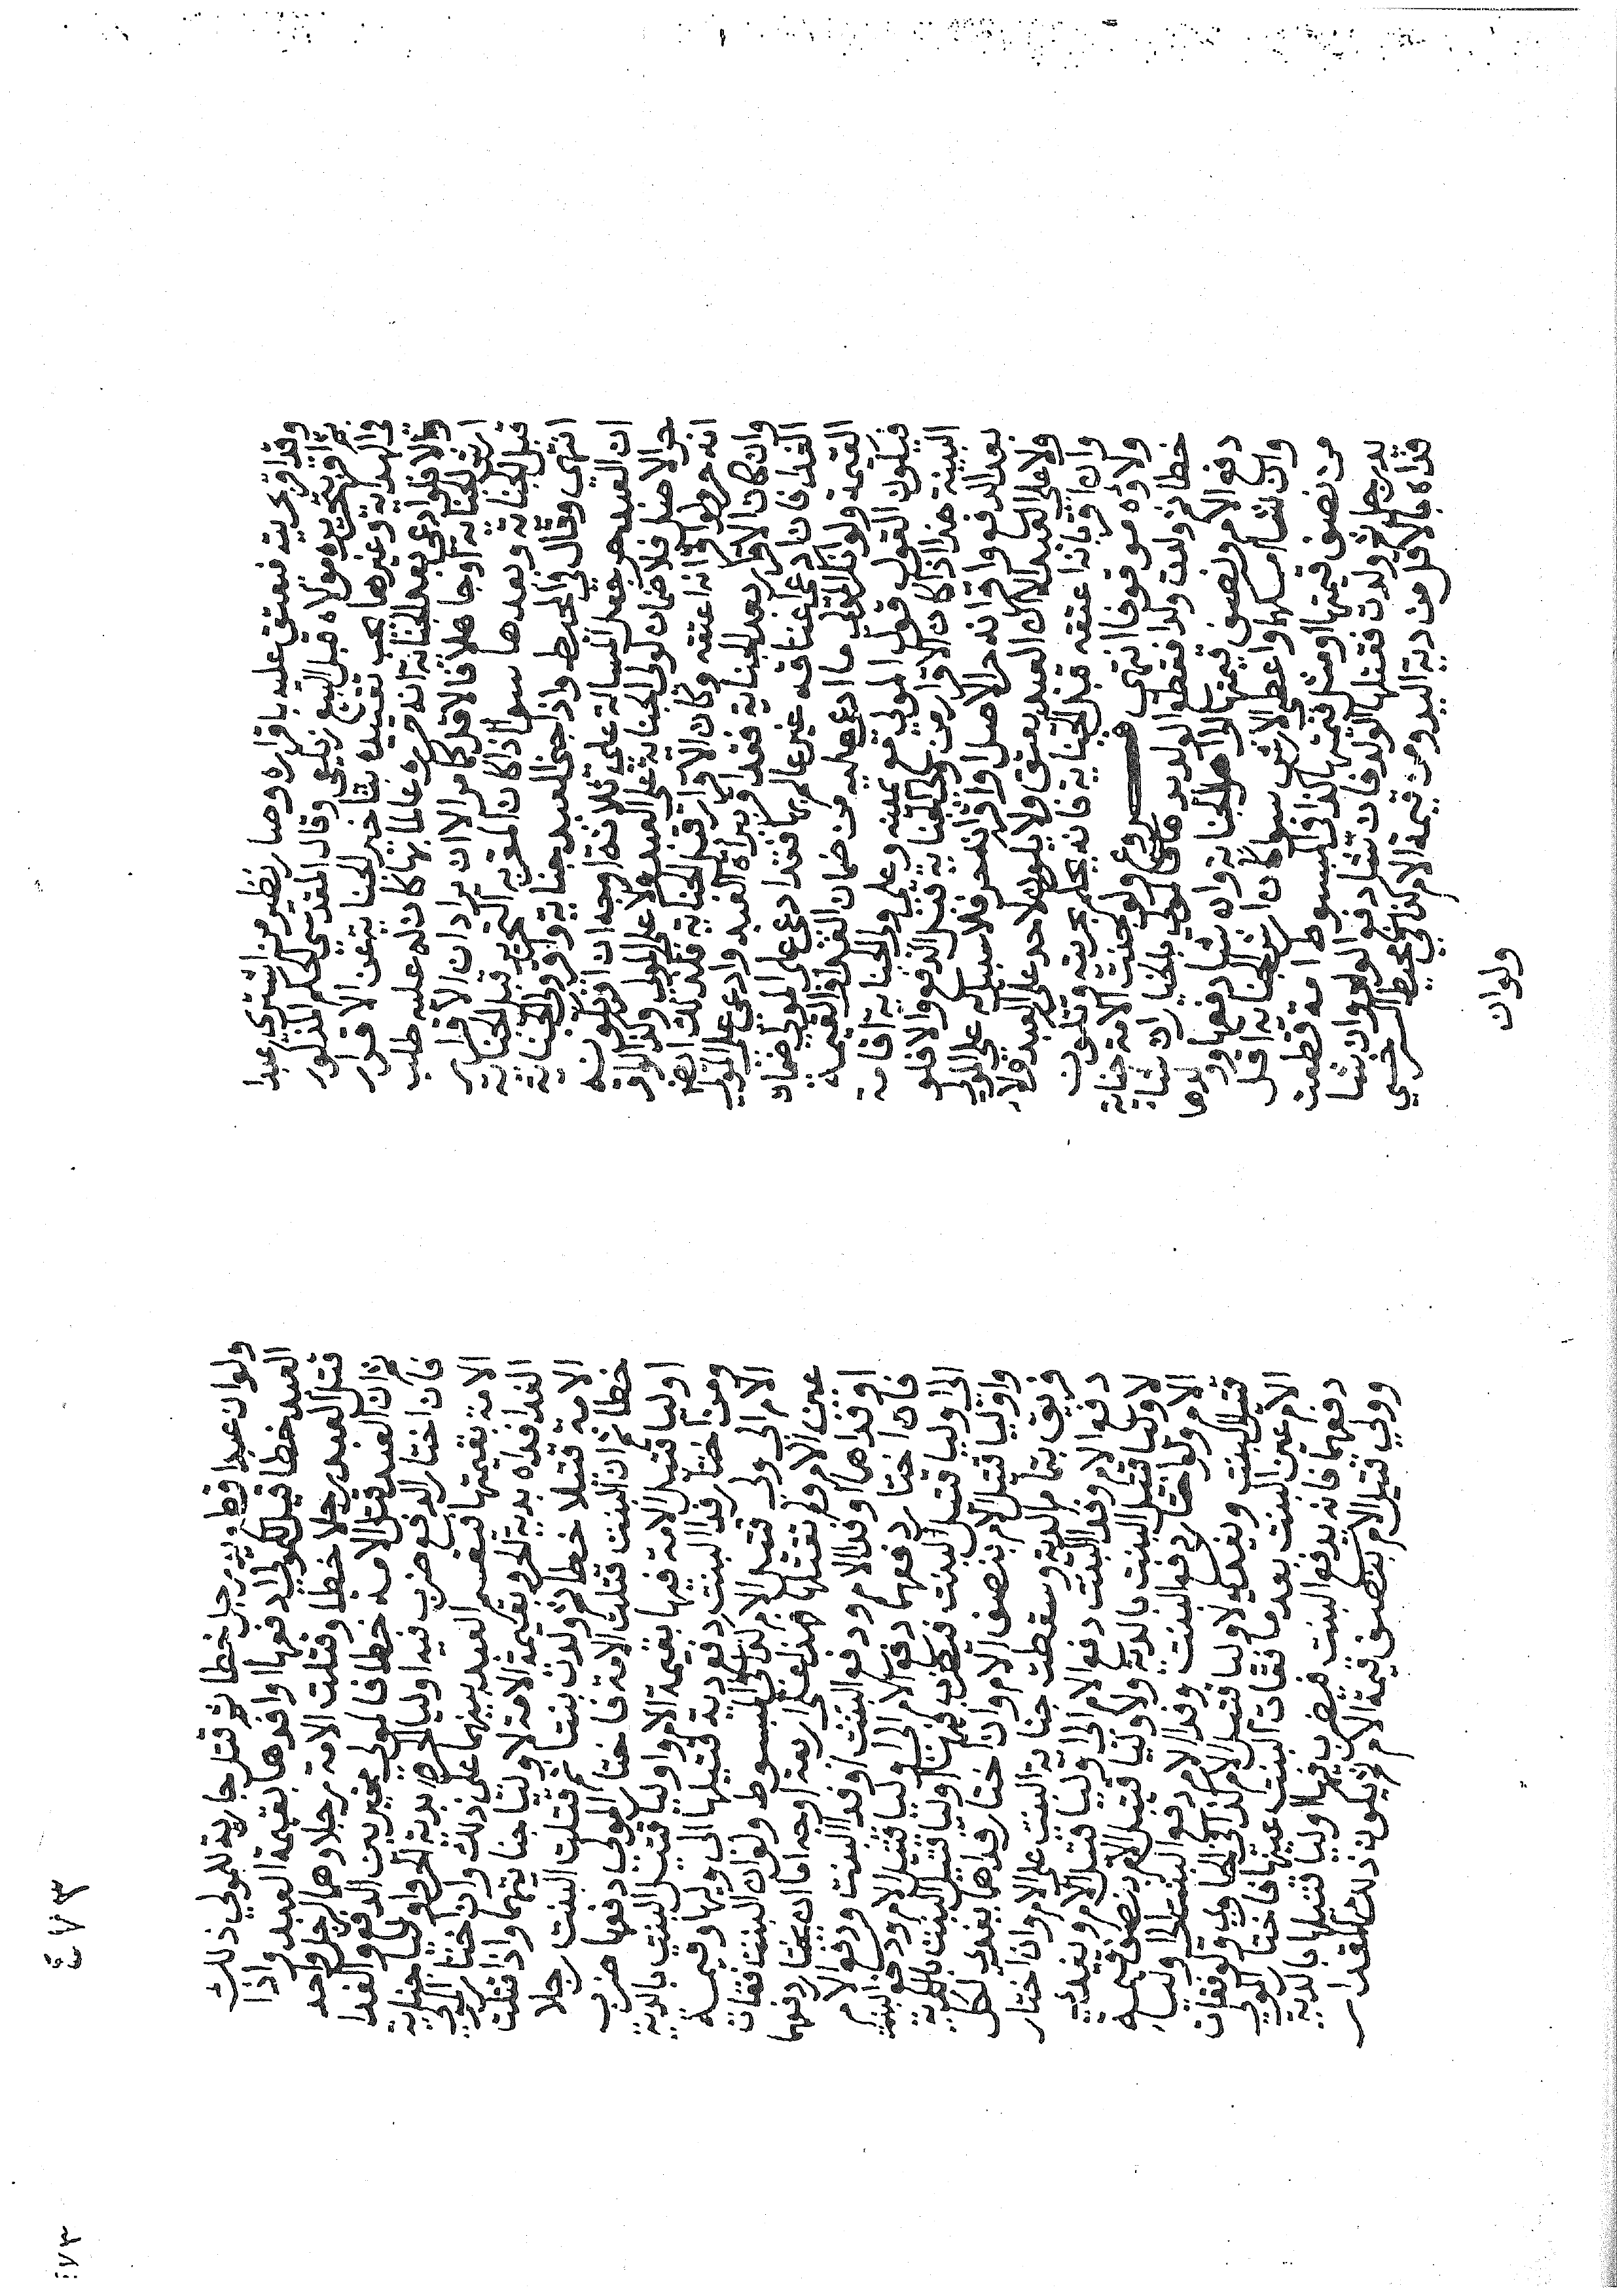 وقد اقر بحريته فيعتق عليه باقراره وصار نظير من اشتري عبدا
ثم اقر بتحرير مولاه قبل البيع زيلعي وقال المقدسي لحكم المذكور
في الهداية وغيرها يجب تقييده بتاخير الجناية عن الاقرار
والا فلو ادعي بعد الجناية انه حرره عالما بها كان له عليه طلب
ارش الجناية او جاهلا فالاقل كما مر الا ان يراد ان الاقرار
قبل الجناية وبعدها سوا اذا كان المقر به التحرير قبل الجناية
انتهي وقال في المحيط واذ جني العبد جناية واقر ولي الجناية
ان العبد حر جعل المسالة على ثلاثة اوجه ان اقر بكونه
حر الاصل فلا ضمان لولي الجناية على العبد ولا على المولي ولذا لو اقر
انه حر ولو اقر انه اعتقه وكان الاقرار قبل الجناية فكذلك ايضا
وان كان الاقرار بعد الجناية فقد اقر ببراة العبد وادعي على المولي
الفدا فان ادعي اعتاقه غير عالم بها فقد ادعي على المولي ضمان
القيمة ولو انكر المولي ما ادعي عليه من ضمان الفدا او القيمة
فيكون القول قول المولي مع يمينه وعلى ولي الجناية اقامة
البينة هذا اذا كان الاقرار من ولي الجناية قبل الدفع والا فلو
بعد الدفع واقر انه حر الاصل او اقر انه حر فلا سبيل له على المولي
ولا على العبد الا ان العبد يعتق ولا يكون لاحد على العبد ولاء
وان اقر بانه اعتقه قبل الجناية فانه يحكم بحريته وتكون
ولاؤه موقوفا انتهي فروع ولو جنت الامة جناية
خطا ثم ولدت ولدا فقطع الولد يدها فالمولي بالخيار ان شاء
دفع الام ونصف قيمتها لوا هل الجناية وان شا دفعها وولدها
وان شا امسكها واعطي الارش سوا كان ارش الجناية اقل
من نصف قيمتها او مثل قيمتها كذا في المبسوط امة قطعت
يد رجل ثم ولدت فقتلها الولد فان شا دفع الولد وان شا
فداه بالاقل من دية اليد ومن قيمة الام كذا في محيط السرخسي
ولوان
ولوان عبدا قطع يد رجل خطا ثم قتل جارية للمولي ذلك
العبد خطا قيل للمولي ادفعها او افدها بقيمة العبد واذا
قتل العبد رجلا خطا وقتلت الامة رجلا وهما لرجل واحد
ثم ان العبد قتل الامة خطا فالمولي مخير بين الدفع والفدا
فان اختار الدفع ضرب فيه اوليا الحر بدية الحر واوليا جناية
الامة بقيمتها فيقسم العبد بينهما على ذلك وان اختار المولي
الفدا فداه بدية الحر وبقيمة الامة لاوليا جنايتهما واذا قتلت
الامة قتيلا خطا ثم ولدت بنتا ثم قتلت البنت رجلا
خطا ثم ان البنت قتلت الامة فاختار المولي دفعها ضرب
اوليا قتيل الامة فيها بقيمة الام واوليا قتيل البنت بالدية
ومن اختار فدا البنت دفع دية قتيلها الي وليها وقيمة
الام الي ولي قتيل الام كذا في المبسوط ولو ان البنت فقات
عين الام ولم تقتلها فهذا على اربعة اوجه اما ان يختار دفعهما
او فداهما او فدا الام ودفع البنت او فدا البنت ودفع الام
فان اختار دفعهما دفع الام الي اوليا قتيل الام ودفع البنت
الي اوليا قتيل البنت فيضرب فيها اوليا قتيل البنت بالدية
واوليا قتيل الام بنصف الام وان اختار فداهما يفدي لكل
فريق بتمام الدية وسقطت جناية البنت على الام وان اختار
دفع الام وفدا البنت دفع الام الي اوليا قتيل الام ويفدي
لاوليا قتيل البنت بالدية ولاوليا قتيل الام بنصف قيمة
الام ولو اختار دفع البنت وفدا الام دفع البنت الي اوليا
قتيل البنت ويفدي لاوليا قتيل الام كذا في الحاوي ولو فقات
الام عين البنت بعد ما فقات البنت عينها فاختار المولي
دفعهما فانه يدفع البنت فيضرب فيها اوليا قتيلها بالدية
وولي قتيل الام بنصف قيمة الام ثم يكون ذلك المقدار
٣٧٤
٣٧